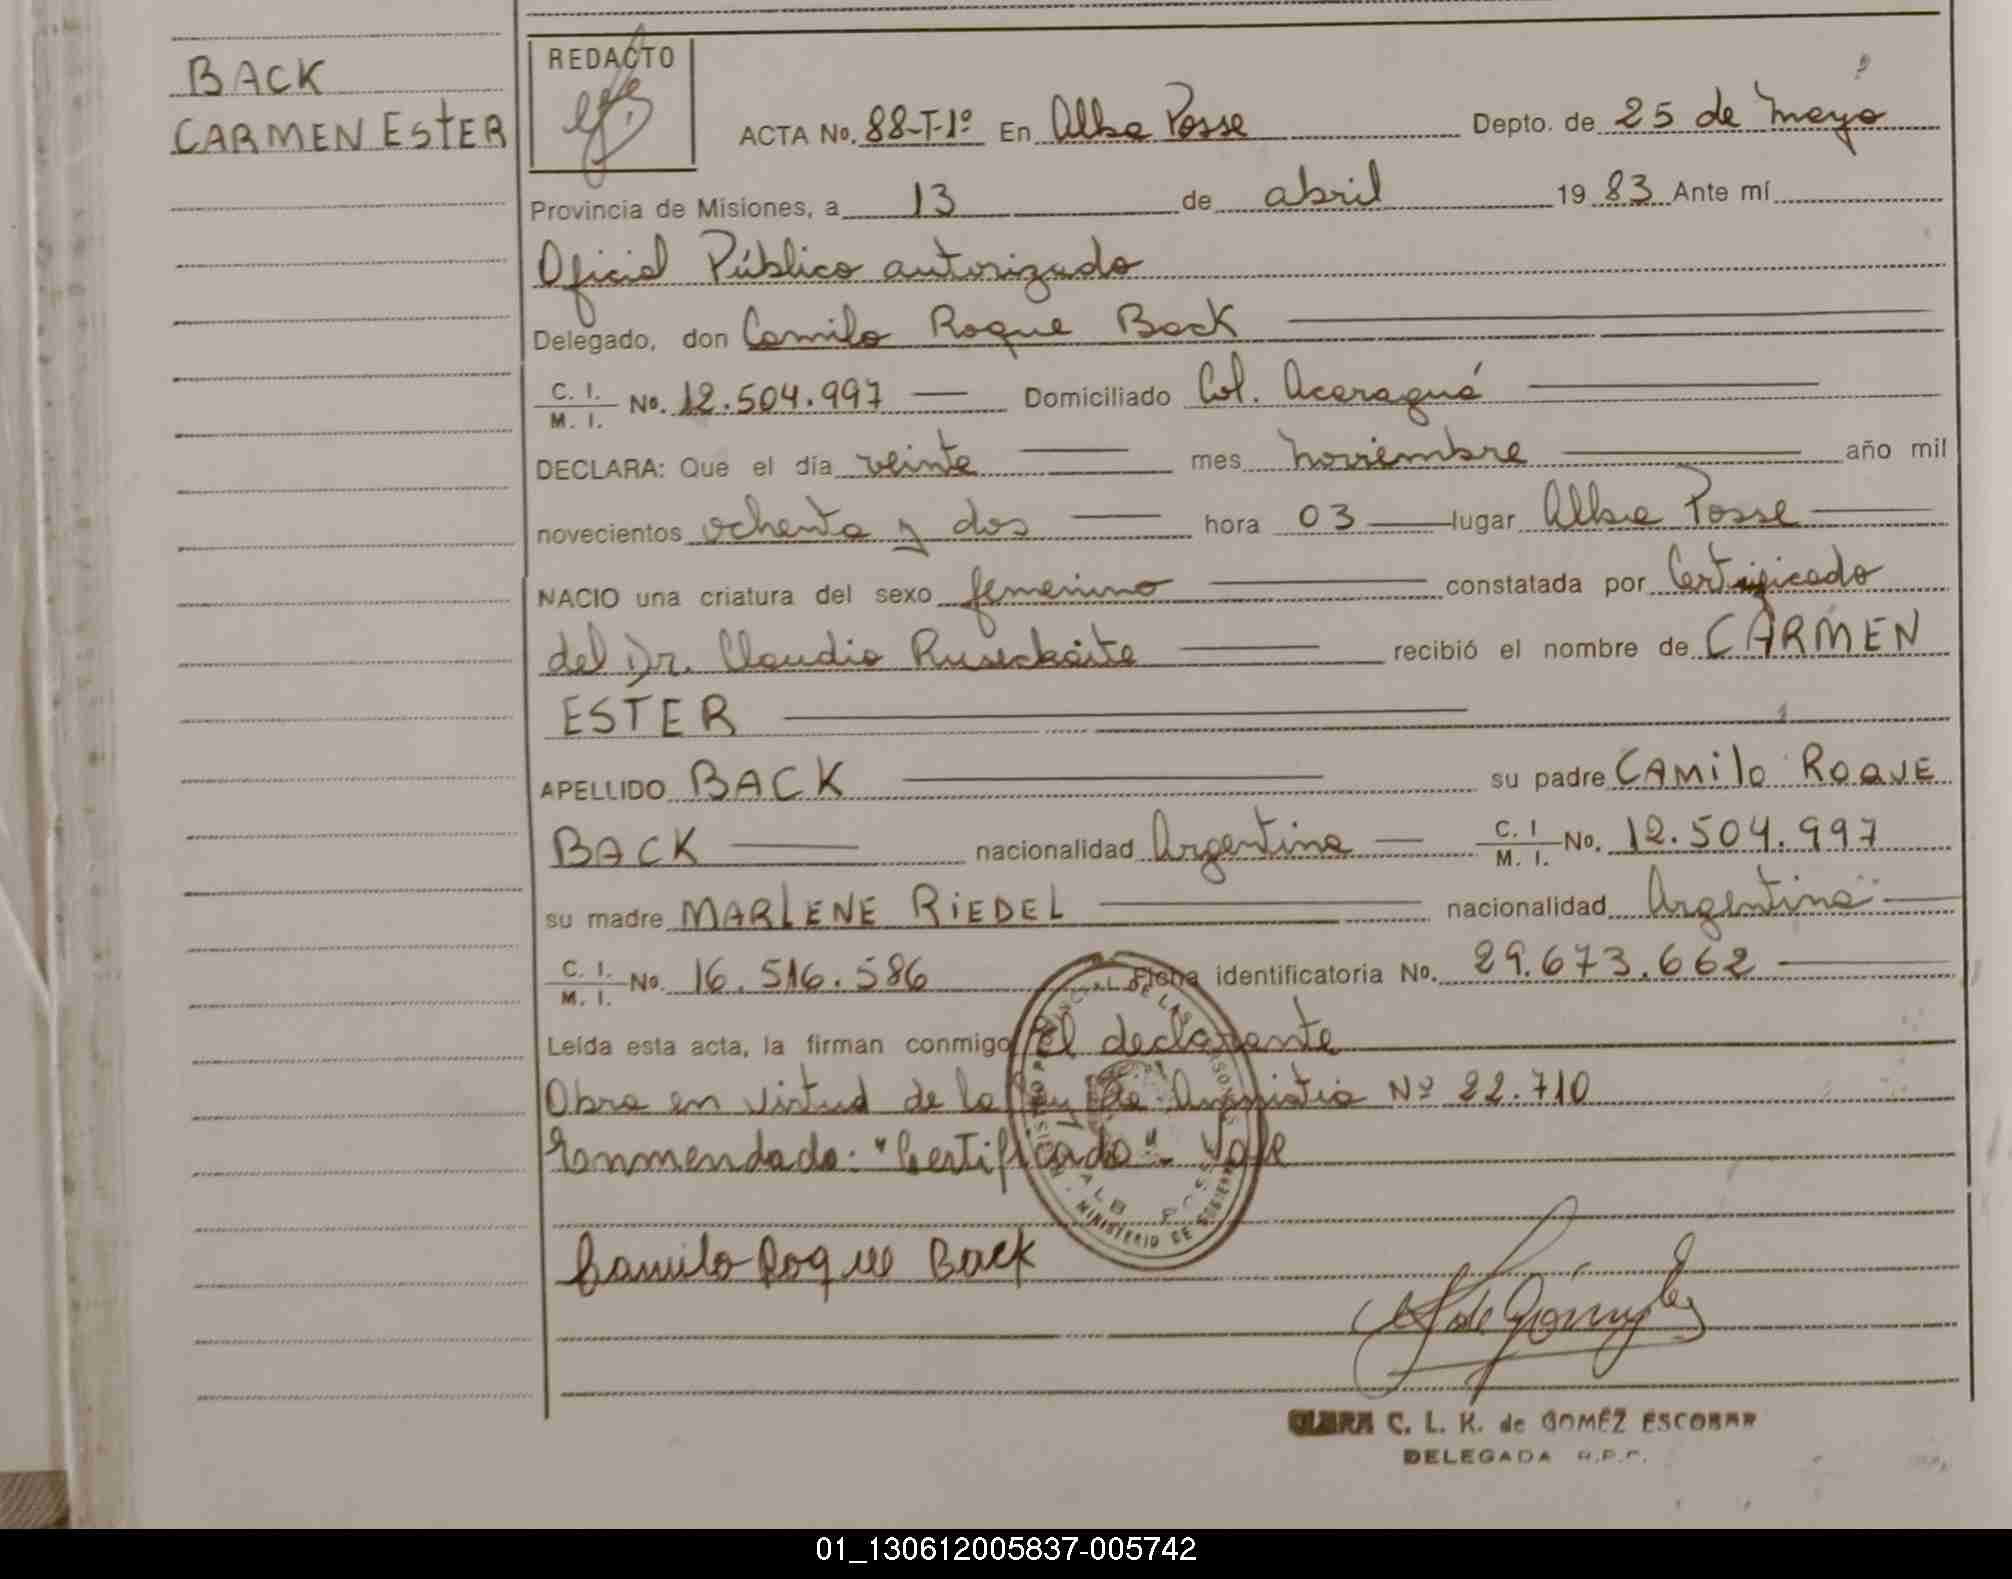 BACK
CARMEN ESTER
REDACTO
ACTA No. 88-T-1º En Alba Posse Depto. de 25 de Mayo
Provincia de Misiones, a 13 de abril 1983 Ante mí
Oficial Público autorizado
Delegado, don Camilo Roque Back
C. I.
M. I. No. 12.504.997 Domiciliado Col. Acaraguá
DECLARA: Que el día veinte mes noviembre año mil
novecientos ochenta y dos hora 03 lugar Alba Posse
NACIO una criatura del sexo femenino constatada por Certificado
del Dr. Claudio Ruseckaite recibió el nombre de CARMEN
ESTER
APELLIDO BACK su padre CAMilo ROQUE
BACK nacionalidad Argentina C. I
M. I. No. 12.504.997
su madre MARLENE RiEDEL nacionalidad Argentina
C. I.
M. I. No. 16.516.586 Ficha identificatoria No. 29.673.662
Leída esta acta, la firman conmigo El declarante
Obra en virtud de la Ley de Amnistia Nº 22.710
Enmendado: "Certificado" Vale
MINISTERIO DE GOBIERNO
Camilo Roque Back
CLARA C. L. K. de GOMEZ ESCOBAR
DELEGADA R.P.C.
01_130612005837-005742